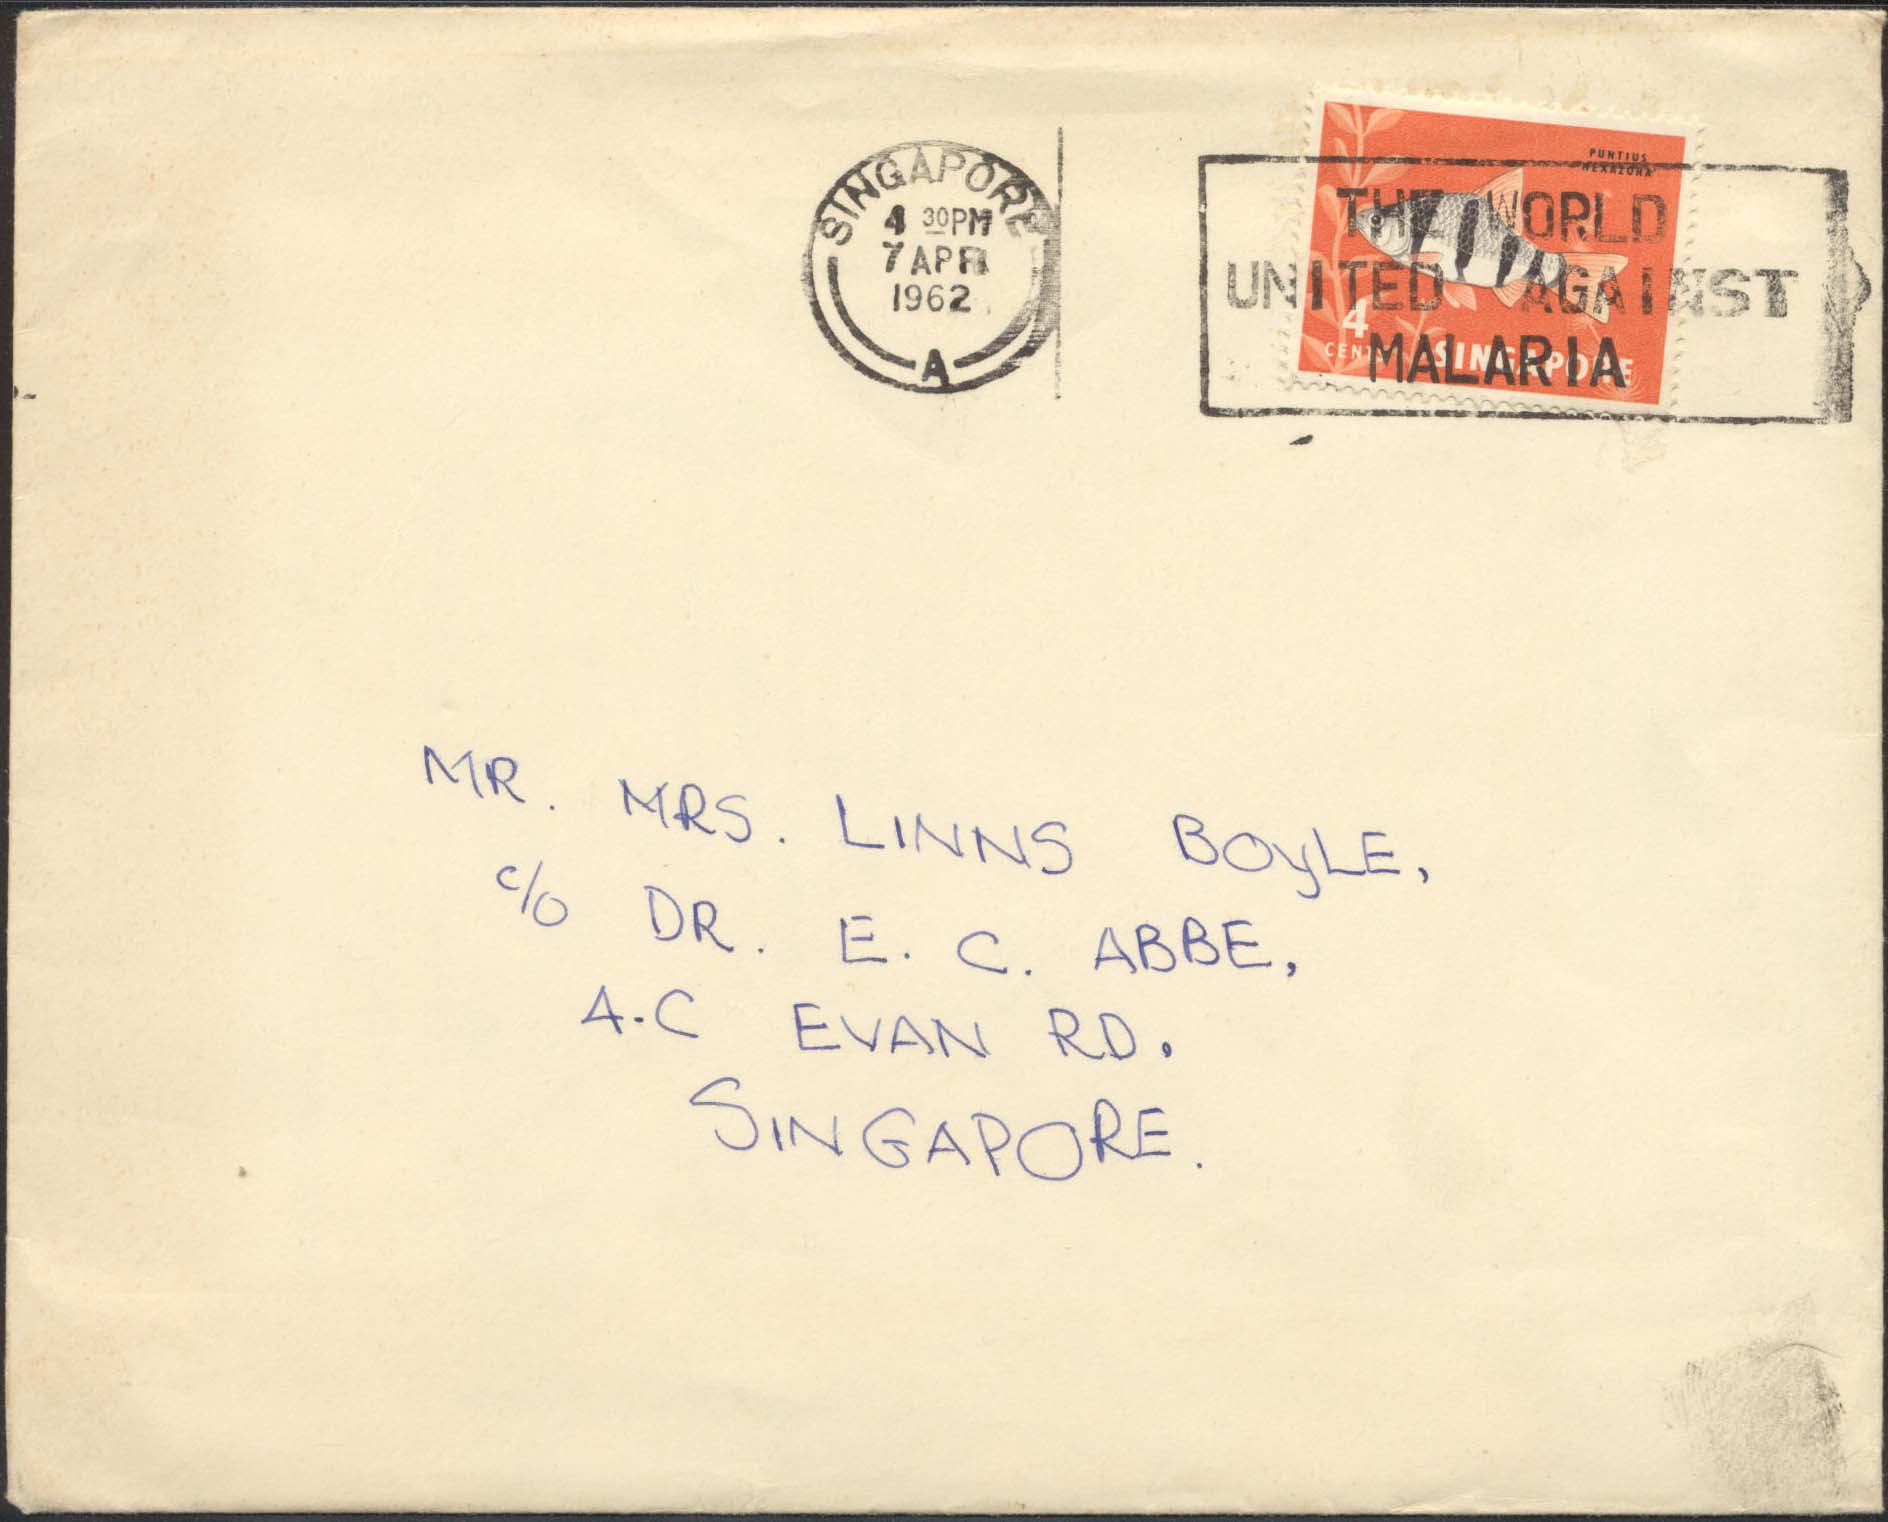 SINGAPORE
4 30PM
7 APR
1962
A
PUNTIUS
HEXAZONA
THE WORLD
UNITED AGAINST
MALARIA
4
CENTS
SINGAPORE
MR. MRS. LINNS BOYLE,
c/o DR. E. C. ABBE,
4.C EVAN RD.
SINGAPORE.